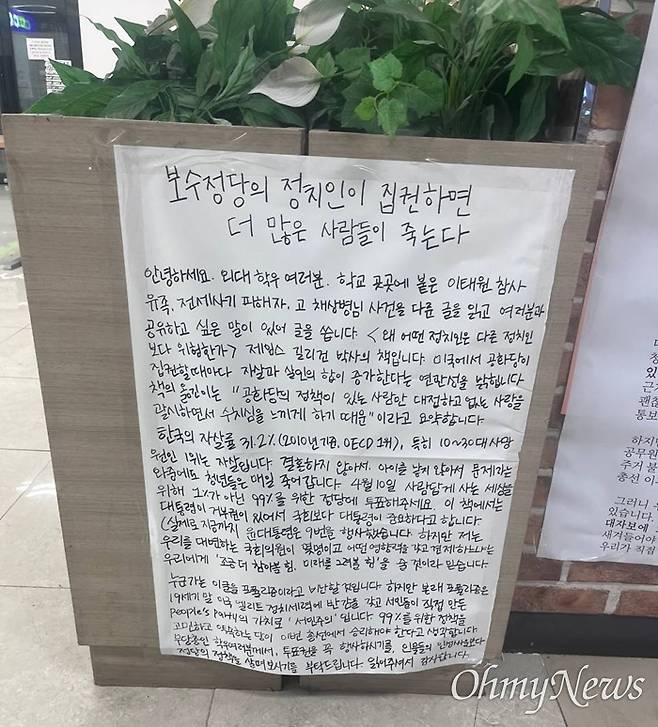 보수정당의 정치인이 집권하면
더 많은 사람들이 죽는다
안녕하세요. 외대 학우 여러분. 학교 곳곳에 붙은 이태원 참사
유족, 전세사기 피해자, 고 채상병님 사건을 다룬 글을 읽고 여러분과
공유하고 싶은 말이 있어 글을 씁니다. <왜 어떤 정치인은 다른 정치인
보다 위험한가> 제임스 길리건 박사의 책입니다. 미국에서 공화당이
집권할때마다 자살과 살인의 합이 증가한다는 연관성을 밝힙니다.
책의 옮긴이는 "공화당의 정책이 있는 사람만 대접하고 없는 사람을
괄시하면서 수치심을 느끼게 하기 때문"이라고 요약합니다.
한국의 자살률 31.2%(2010년 기준, OECD 1위), 특히 10~30대 사망
원인 1위는 자살입니다. 결혼하지 않아서, 아이를 낳지 않아서 문제라는
와중에도 청년들은 매일 죽어갑니다. 4월 10일 사람답게 사는 세상을
위해 1%가 아닌 99%를 위한 정당에 투표해주세요. 이 책에서는
대통령이 거부권이 있어서 국회보다 대통령이 중요하다고 합니다.
(실제로 지금까지 윤대통령은 9번을 행사했습니다.) 하지만 저는
우리를 대변하는 국회의원이 몇명이고 어떤 영향력을 갖고 견제하느냐는
우리에게 '조금 더 참아볼 힘, 미래를 그려볼 힘'을 줄 것이라 믿습니다.
누군가는 이를 포퓰리즘이라고 비난할 것입니다. 하지만 본래 포퓰리즘은
19세기말 미국 엘리트 정치세력에 반감을 갖고 서민들이 직접 만든
people's party의 가치로 '서민주의'입니다. 99%를 위한 정책을
고민하고 약속하는 당이 이번 총선에서 승리해야 한다고 생각합니다.
무당층인 학우여러분께서, 투표권을 꼭 행사하시기를, 인물들의
정당의 정책을 살펴보시기를 부탁드립니다. 읽어주셔서 감사합니다.
하지만
공무원
주거 불
총선 이
그러니
있습니다.
대자보에
새겨들어야
우리가 직접
OhmyNews